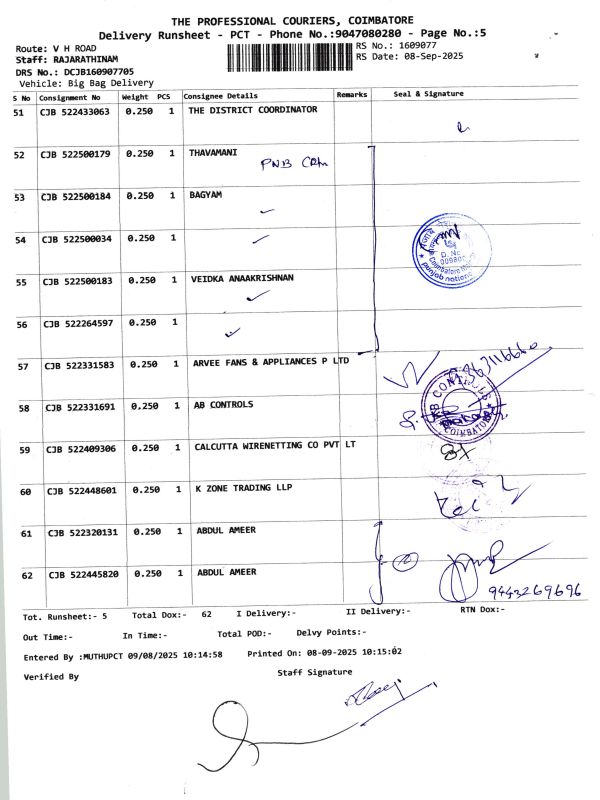 THE PROFESSIONAL COURIERS, COIMBATORE
Delivery Runsheet - PCT - Phone No.:9047080280 - Page No.:5
Route: V H ROAD
RS No.: 1609077
Staff: RAJARATHINAM
RS Date: 08-Sep-2025
DRS No.: DCJB160907705
Vehicle: Big Bag Delivery
S No Consignment No Weight PCS Consignee Details Remarks Seal & Signature
51 CJB 522433063 0.250 1 THE DISTRICT COORDINATOR
52 CJB 522500179 0.250 1 THAVAMANI
PNB
53 CJB 522500184 0.250 1 BAGYAM
54 CJB 522500034 0.250 1
55 CJB 522500183 0.250 1 VEIDKA ANAAKRISHNAN
56 CJB 522264597 0.250 1
57 CJB 522331583 0.250 1 ARVEE FANS & APPLIANCES P LTD
58 CJB 522331691 0.250 1 AB CONTROLS
AB CONTROLS
COIMBATORE
59 CJB 522409306 0.250 1 CALCUTTA WIRENETTING CO PVT LT
60 CJB 522448601 0.250 1 K ZONE TRADING LLP
61 CJB 522320131 0.250 1 ABDUL AMEER
62 CJB 522445820 0.250 1 ABDUL AMEER
9443269696
Tot. Runsheet:- 5 Total Dox:- 62 I Delivery:- II Delivery:- RTN Dox:-
Out Time:- In Time:- Total POD:- Delvy Points:-
Entered By :MUTHUPCT 09/08/2025 10:14:58 Printed On: 08-09-2025 10:15:02
Verified By Staff Signature